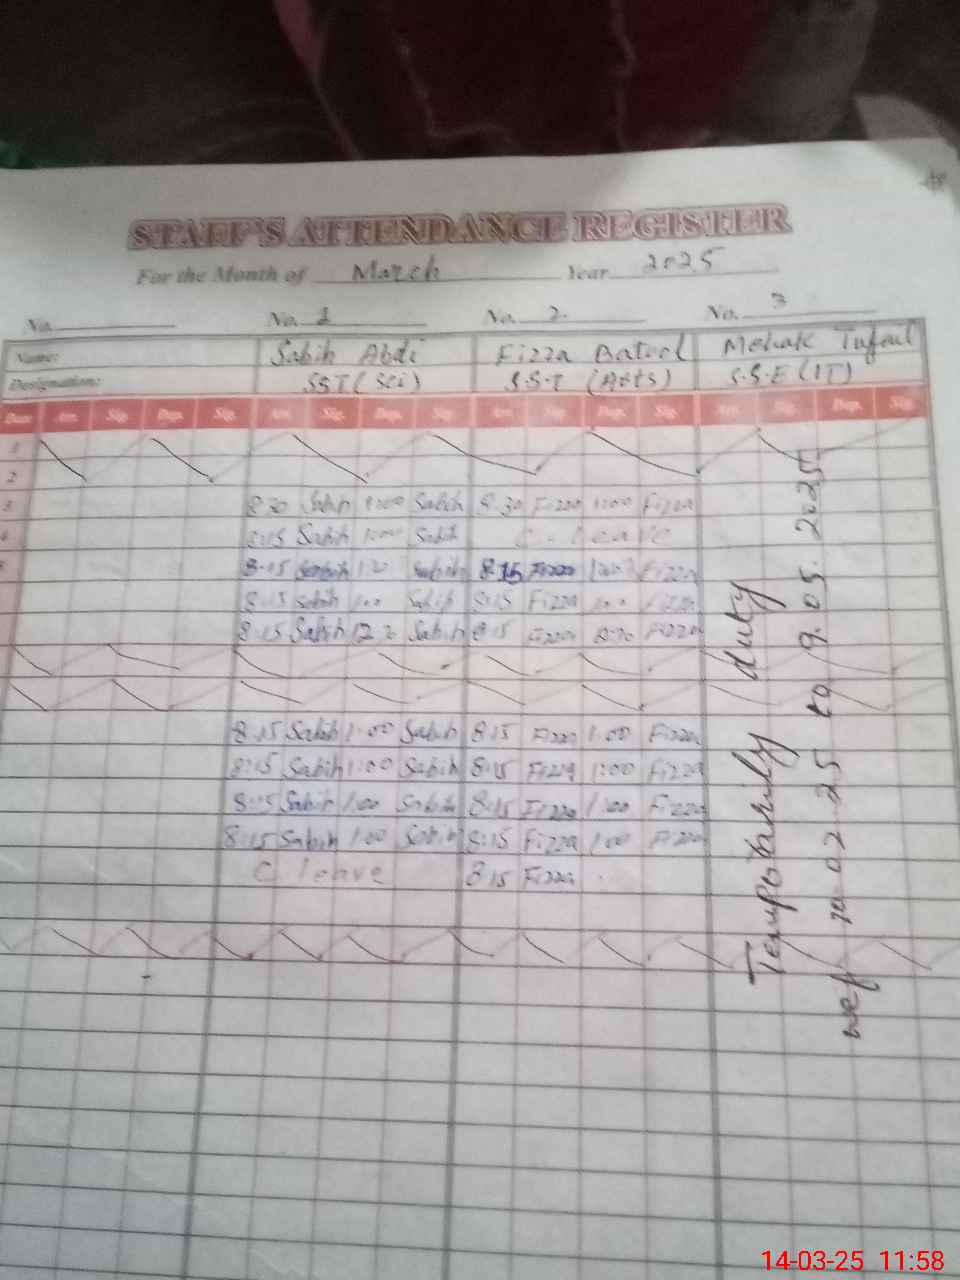 STAFF'S ATTENDANCE REGISTER
For the Month of March Year 2025
No. No. 1 No. 2. No. 3
Name: Sabih Abdi Fizza Batool Mehak Tufail
Designation: SST (Sci) S.S.T (Arts) S.S.E (IT)
Date Arr. Sig. Dep. Sig. Arr. Sig. Dep. Sig. Arr. Sig. Dep. Sig. Arr. Sig. Dep. Sig.
1
2
3 8:30 Sabih 1:00 Sabih 8:30 Fizza 1:00 Fizza
4 8:15 Sabih 1:00 Sabih C. leave
5 8:15 Sabih Sabih 8:15 Fizza Fizza
8:15 Sabih 1:00 Sabih 8:15 Fizza 1:00 Fizza
8:15 Sabih Sabih 8:15 Fizza Fizza
8:15 Sabih 1:00 Sabih 8:15 Fizza 1:00 Fizza
8:15 Sabih 1:00 Sabih 8:15 Fizza 1:00 Fizza
8:15 Sabih 1:00 Sabih 8:15 Fizza 1:00 Fizza
8:15 Sabih 1:00 Sabih 8:15 Fizza 1:00 Fizza
C leave 8:15 Fizza
Temporarily duty
wef 02.25 to 9.05.2025
14-03-25 11:58